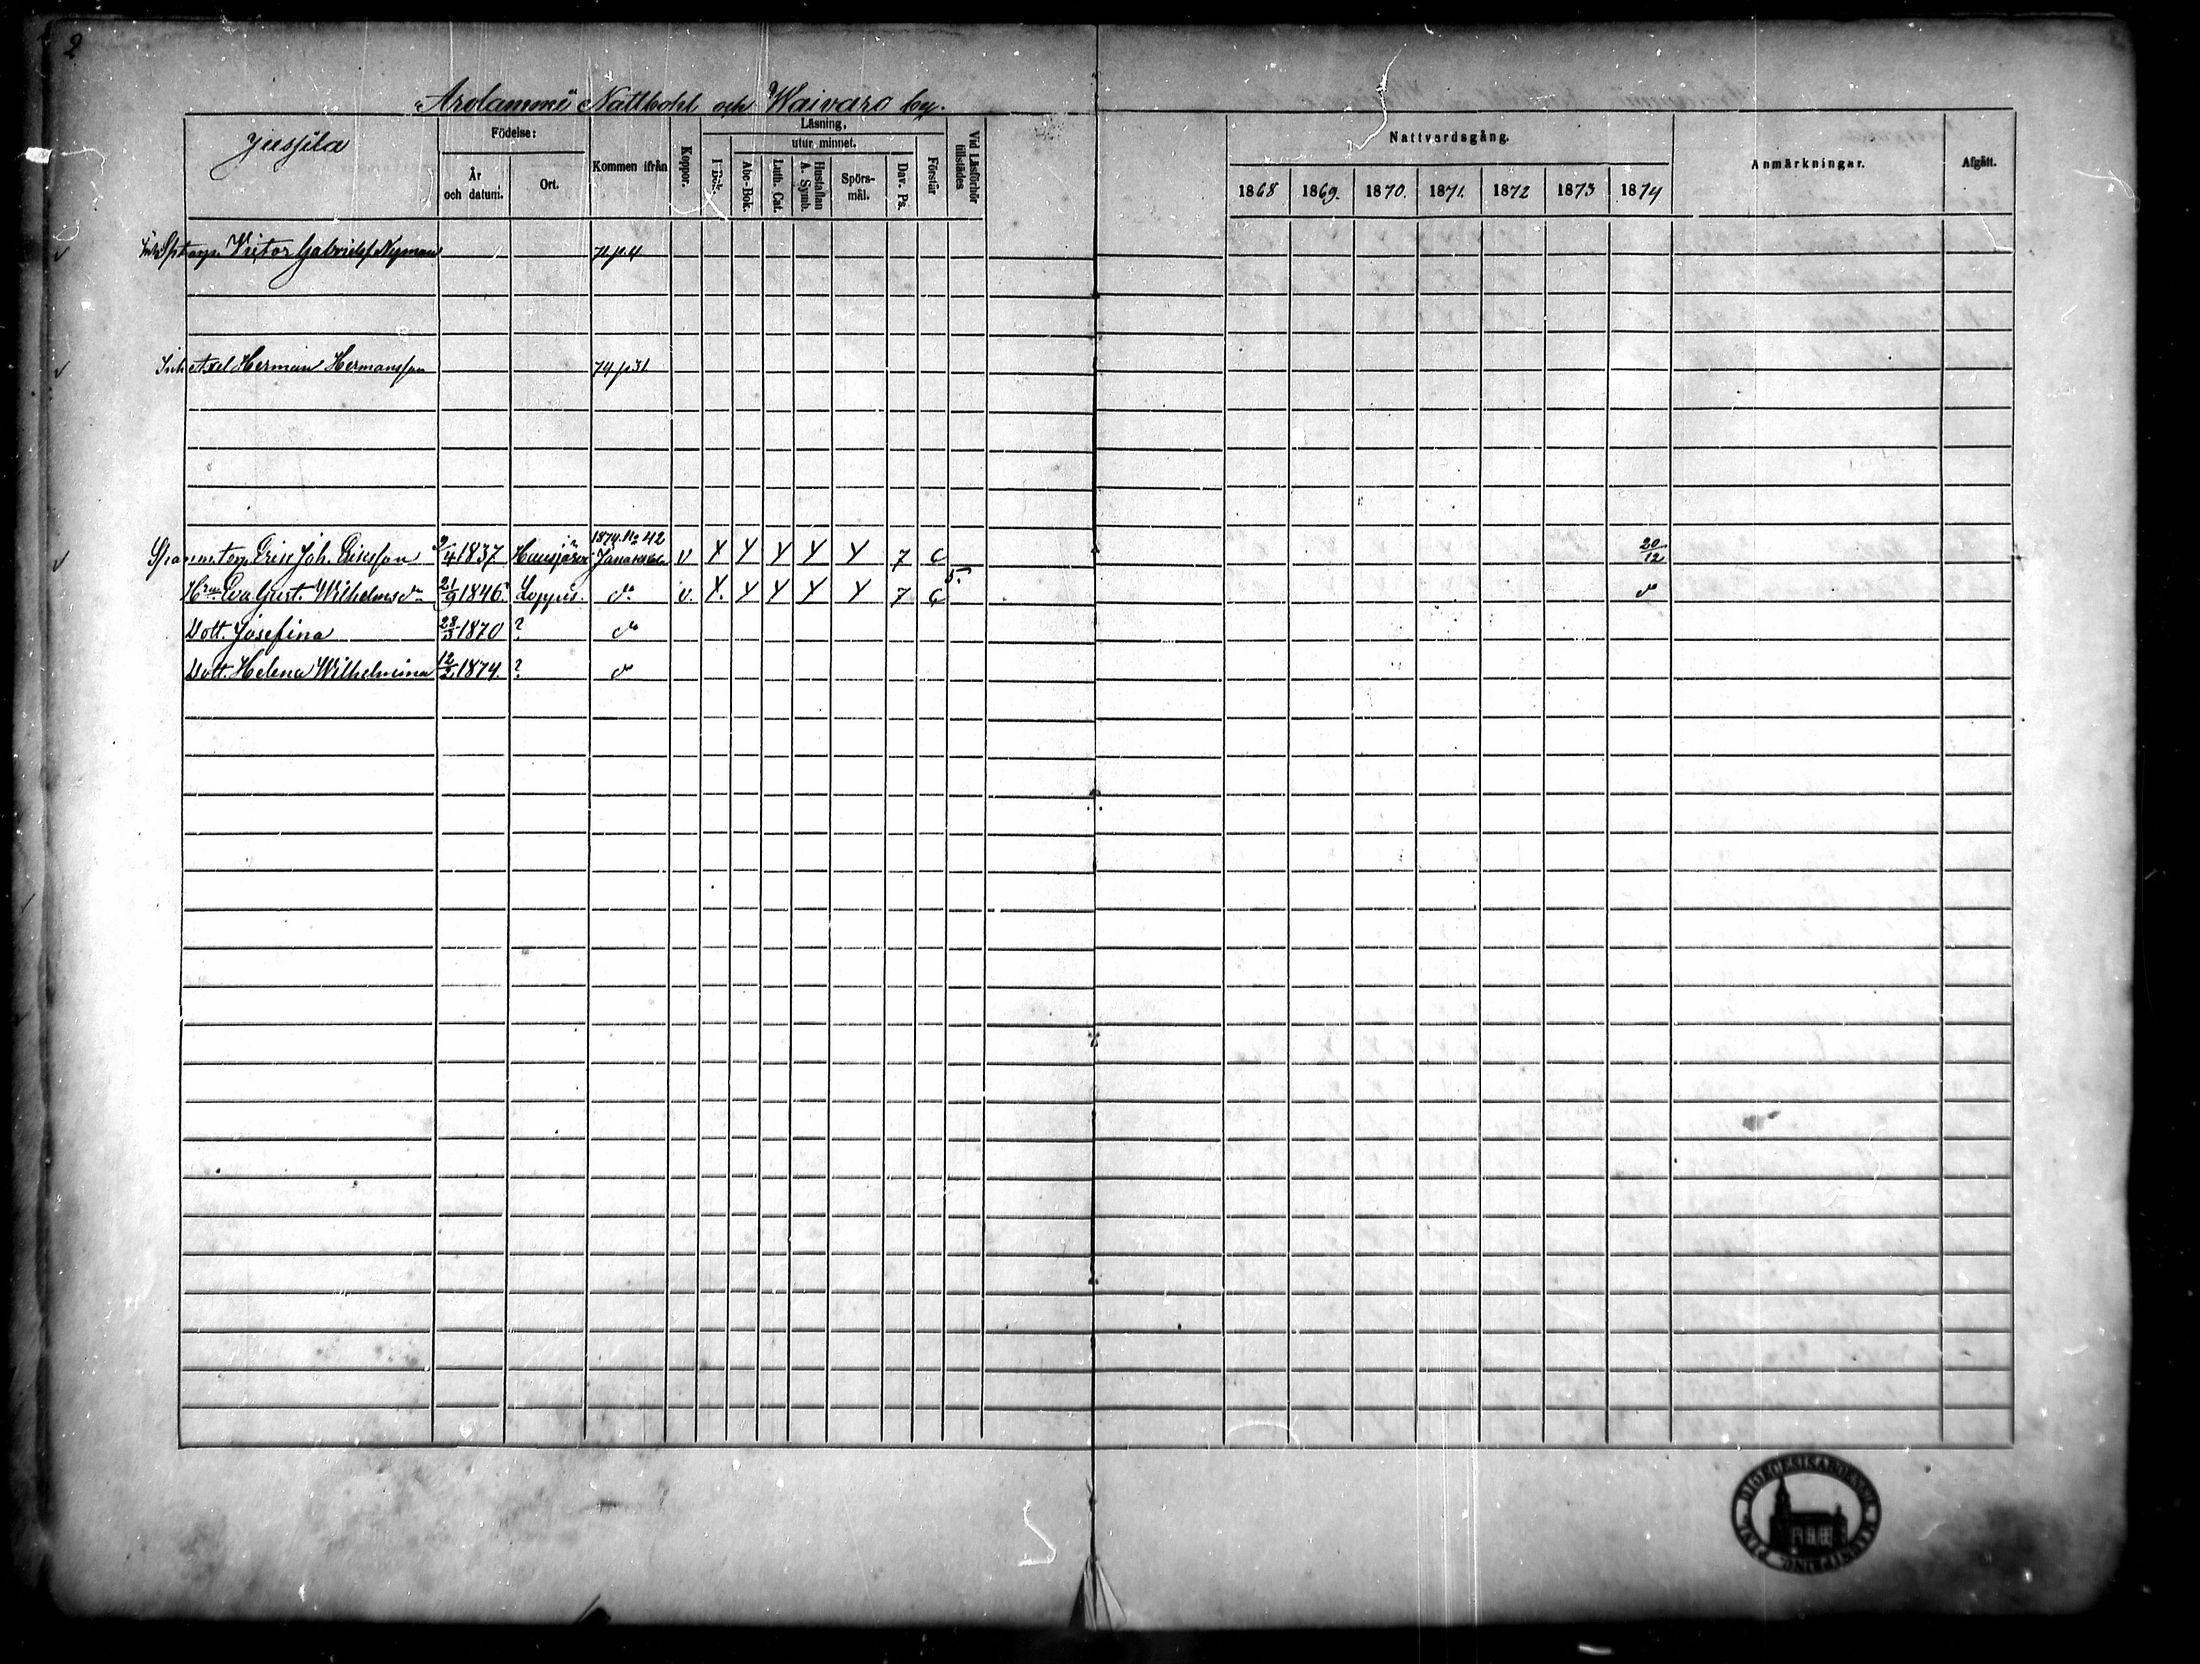 2
"Arolammi" Nattbohl och Waivaro by.
Jussila
Födelse:
År och datum.
Ort.
Kommen ifrån
Koppor.
Läsning,
I Bok.
utur minnet.
Abc-Bok.
Luth. Cat.
Hustaflan A. Symb.
Spörs-mål.
Dav. Ps.
Förstår
Vid Läsförhör tillstädes
Nattvardsgång.
1868 1869. 1870. 1871. 1872 1873 1874
Anmärkningar.
Afgått.
Inh Sp torp. Victor Gabrielss Nyman 74.p.4
Inh Axel Herman Hermansson 74 p 31
torp. Erik Joh. Eriksson 9/4 1837 Hausjärvi 1874. No 42 Janakkala v Y Y Y Y Y 7 C 20/12
Hru Eva Gust. Wilhelmsdr 21/9 1846. Loppis. do v. Y. Y Y Y Y 7 C 5. do
Dott. Josefina 23/3 1870 ? do
Dott. Helena Wilhelmina 12/2 1874. ? do